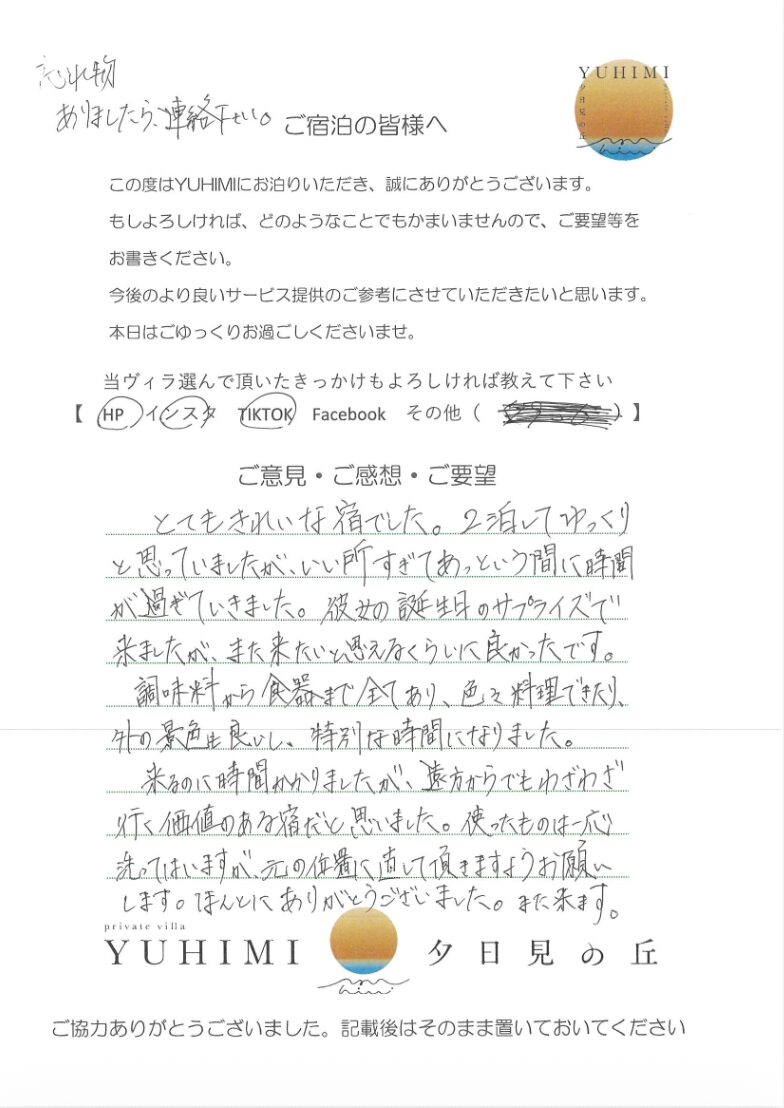 忘れ物
ありましたら、連絡下さい。
ご宿泊の皆様へ
YUHIMI
夕日見の丘
この度はYUHIMIにお泊りいただき、誠にありがとうございます。
もしよろしければ、どのようなことでもかまいませんので、ご要望等を
お書きください。
今後のより良いサービス提供のご参考にさせていただきたいと思います。
本日はごゆっくりお過ごしくださいませ。
当ヴィラ選んで頂いたきっかけもよろしければ教えて下さい
【 HP インスタ TIKTOK Facebook その他（ ）】
ご意見・ご感想・ご要望
とてもきれいな宿でした。2泊してゆっくり
と思っていましたが、いい所すぎてあっという間に時間
が過ぎていきました。彼女の誕生日のサプライズで
来ましたが、また来たいと思えるくらいに良かったです。
調味料から食器まで全てあり、色々料理できたり、
外の景色も良いし、特別な時間になりました。
来るのに時間かかりましたが、遠方からでもわざわざ
行く価値のある宿だと思いました。使ったものは一応
洗ってはいますが、元の位置に直して頂きますようお願い
します。ほんとにありがとうございました。また来ます。
private villa
YUHIMI 夕日見の丘
ご協力ありがとうございました。記載後はそのまま置いておいてください